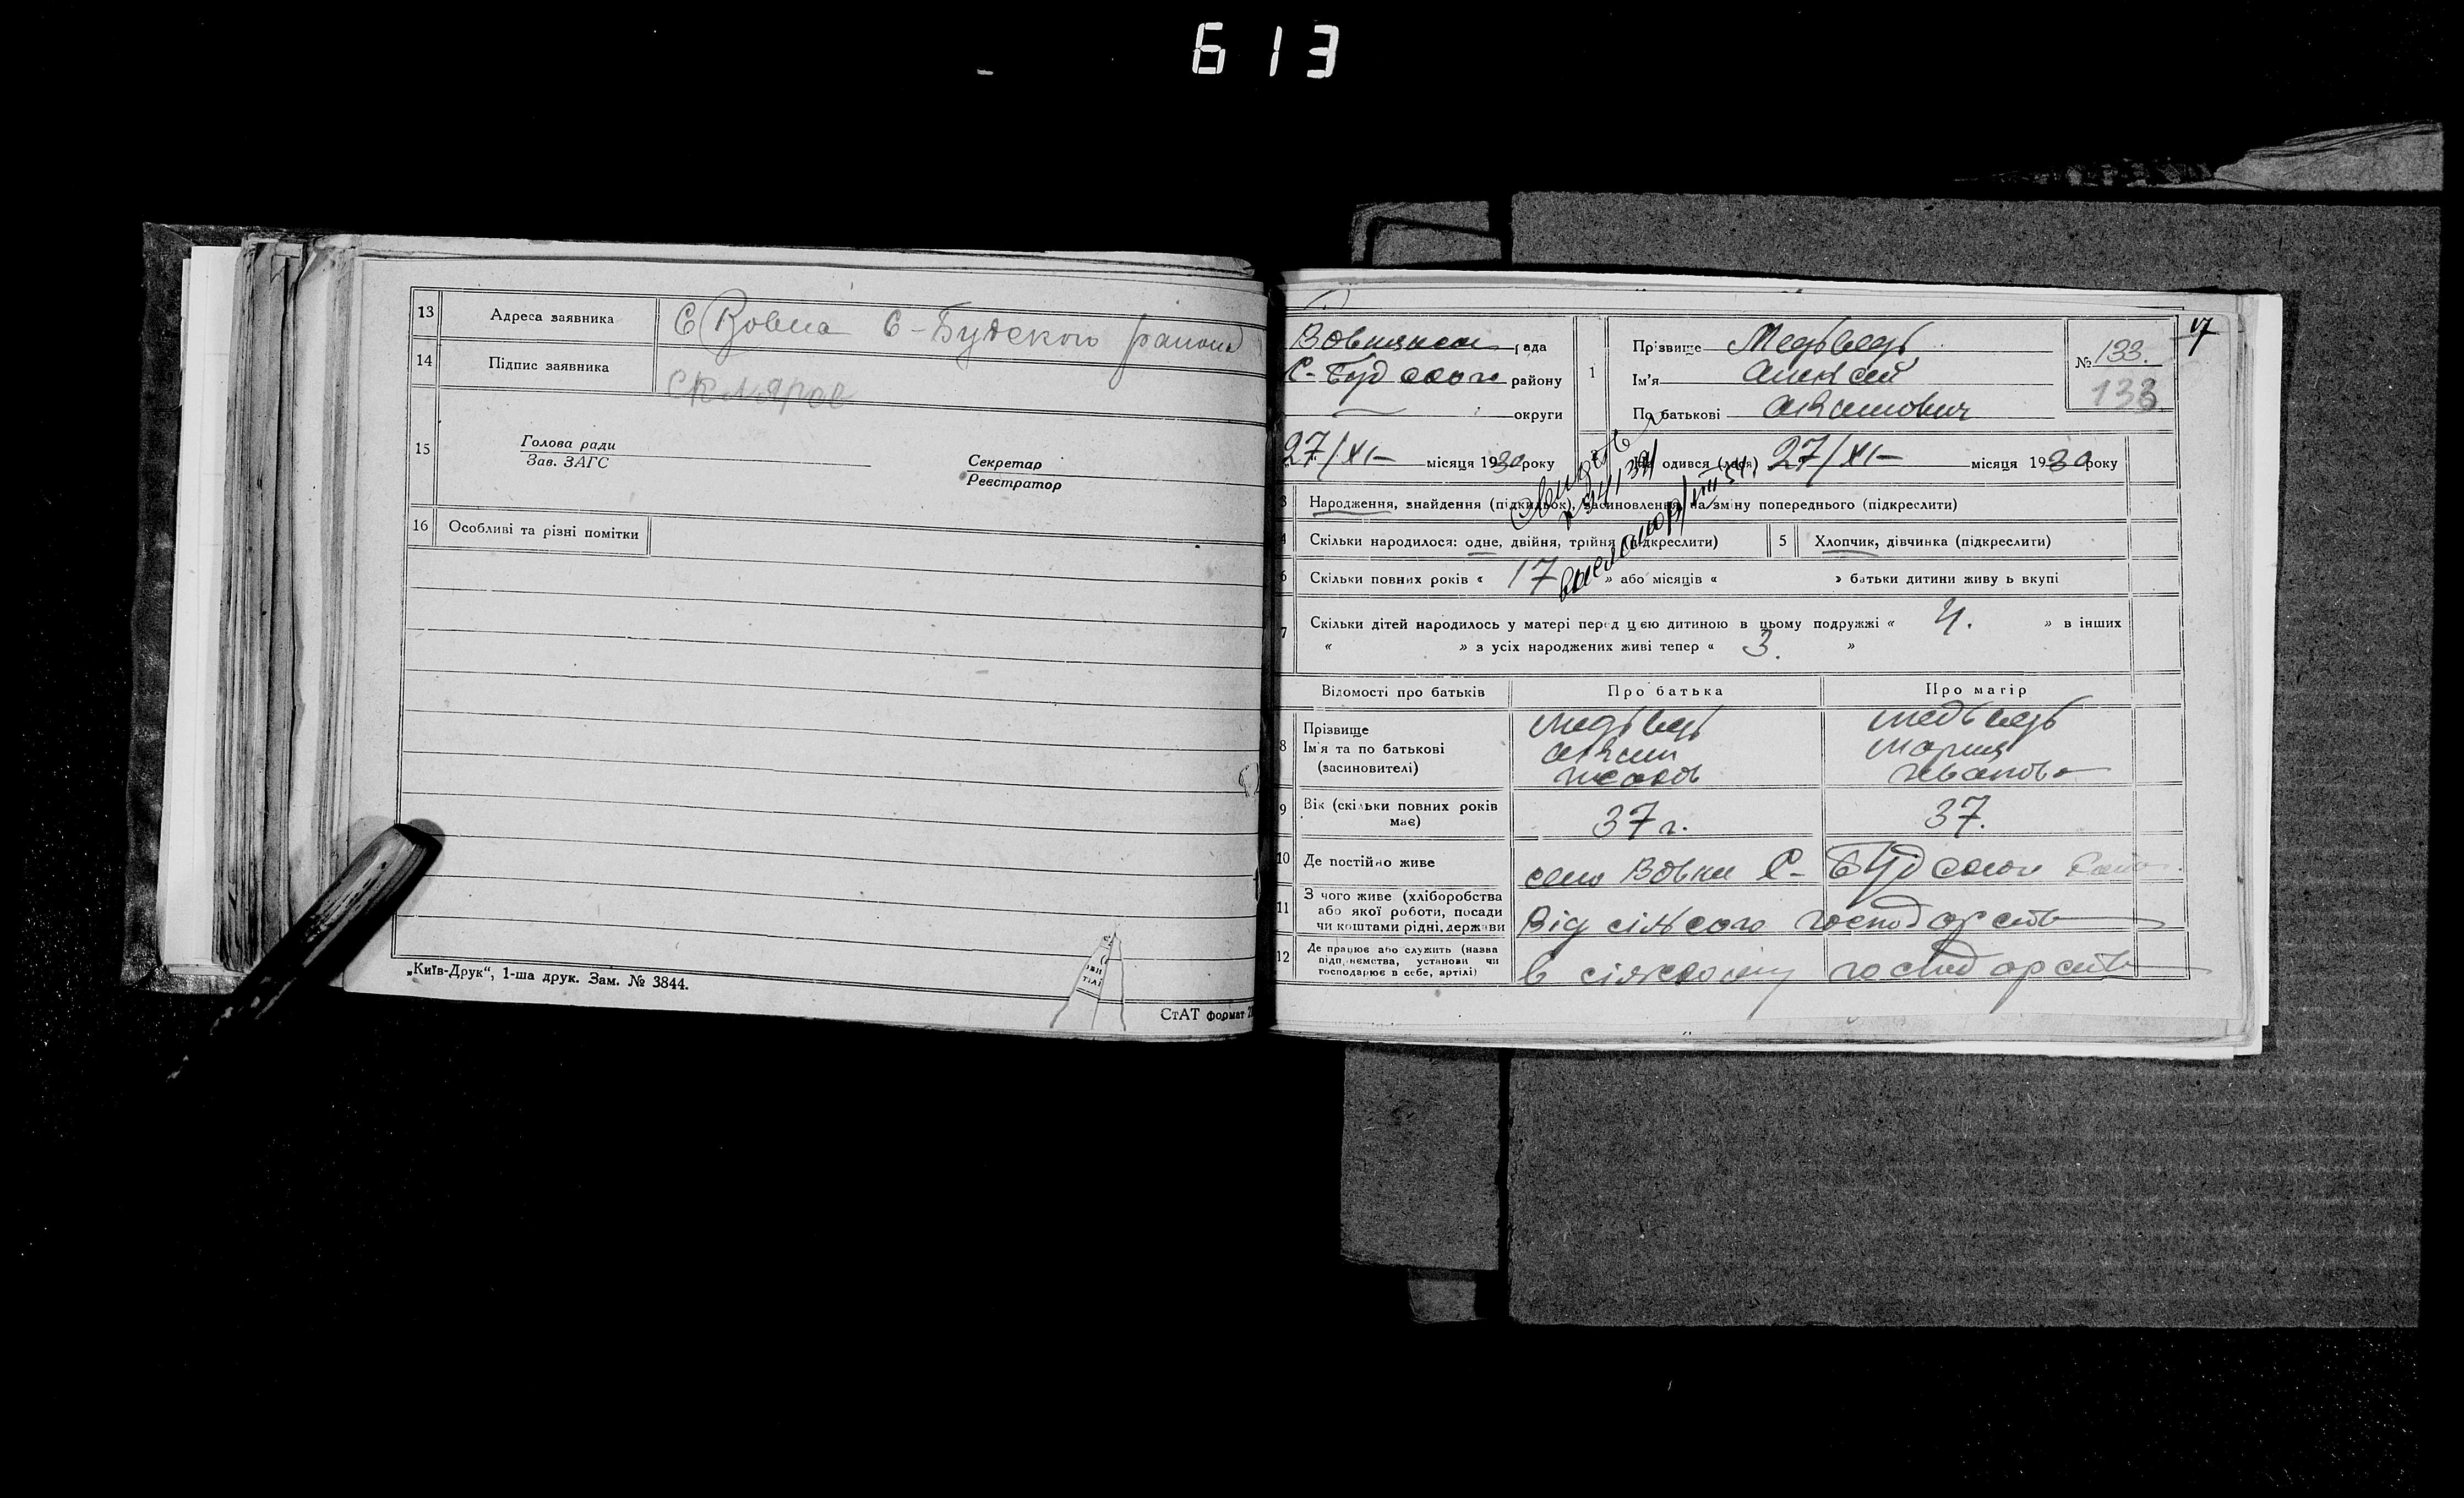 613
13 Адреса заявника С Вовна С-Будского района
14 Підпис заявника Скляров
15 Голова ради
Зав. ЗАГС
Секретар
Реєстратор
16 Особливі та різні помітки
„Київ-Друк“, 1-ша друк. Зам. № 3844.
СтАТ формат
17
рада
С-Будского району
округи
27/XI— місяця 1930 року
1 Прізвище Медьведь
Ім'я Алексей
По батькові
№ 133.
133
одився (лася) 27/XI— місяця 1930 року
3 Народження, знайдення (підкидьок), засиновлення, на зміну попереднього (підкреслити)
4 Скільки народилося: одне, двійня, трійня (підкреслити) 5 Хлопчик, дівчинка (підкреслити)
6 Скільки повних років « 17 » або місяців « » батьки дитини живу ь вкупі
7 Скільки дітей народилось у матері перед цією дитиною в цьому подружжі « 4. » в інших
« » з усіх народжених живі тепер « 3. »
Відомості про батьків Про батька Про матір
8 Прізвище Медьведь Медьведь
Ім'я та по батькові Мария
(засиновителі) Иванов
9 Вік (скільки повних років має) 37 г. 37.
10 Де постійно живе село Вовни С-Будского
11 З чого живе (хліборобства
або якої роботи, посади
чи коштами рідні, держави Від сільсого господарств
12 Де працює або служить (назва
підприємства, установи чи
господарює в себе, артілі) в сільському господарств